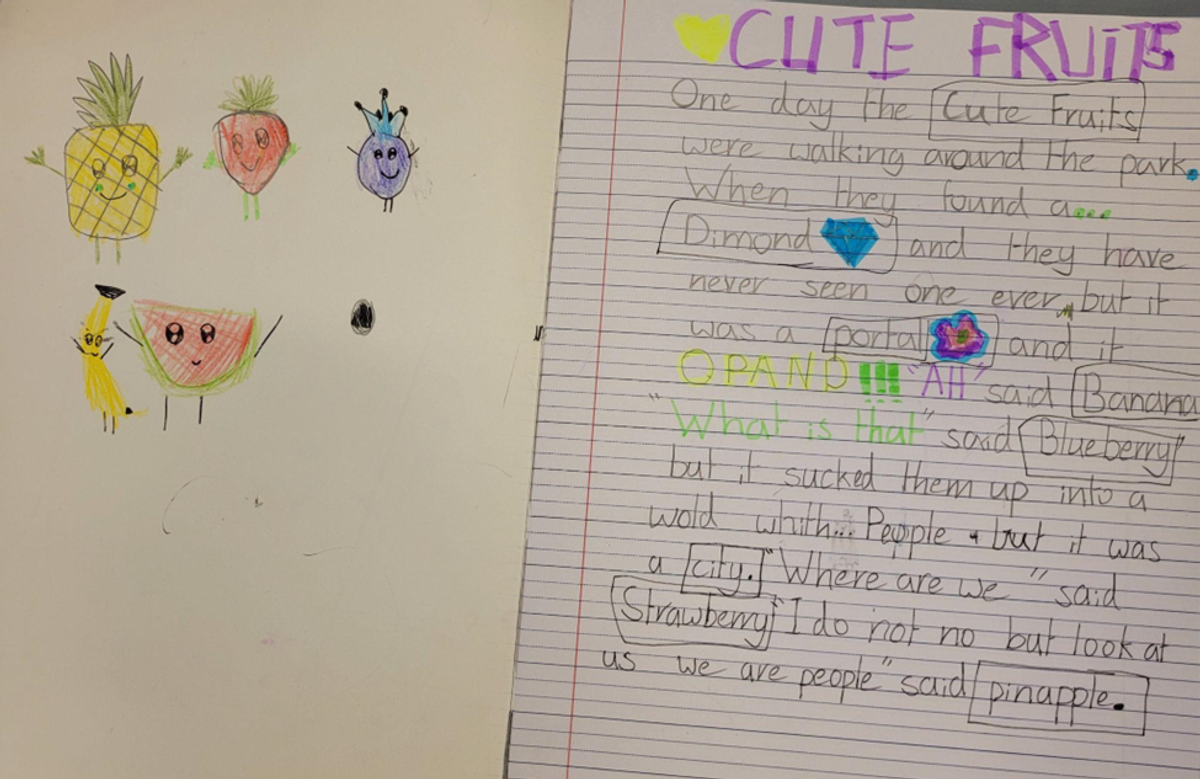 CUTE FRUiTS
One day the Cute Fruits
were walking around the park.
When they found a...
Dimond and they have
never seen one ever, but it
was a portal and it
OPAND!!! "AH" said Banana
"What is that" said Blueberry"
but it sucked them up into a
wold whith... People but it was
a city. "Where are we" said
Strawberry "I do not no but look at
us we are people" said pinapple.